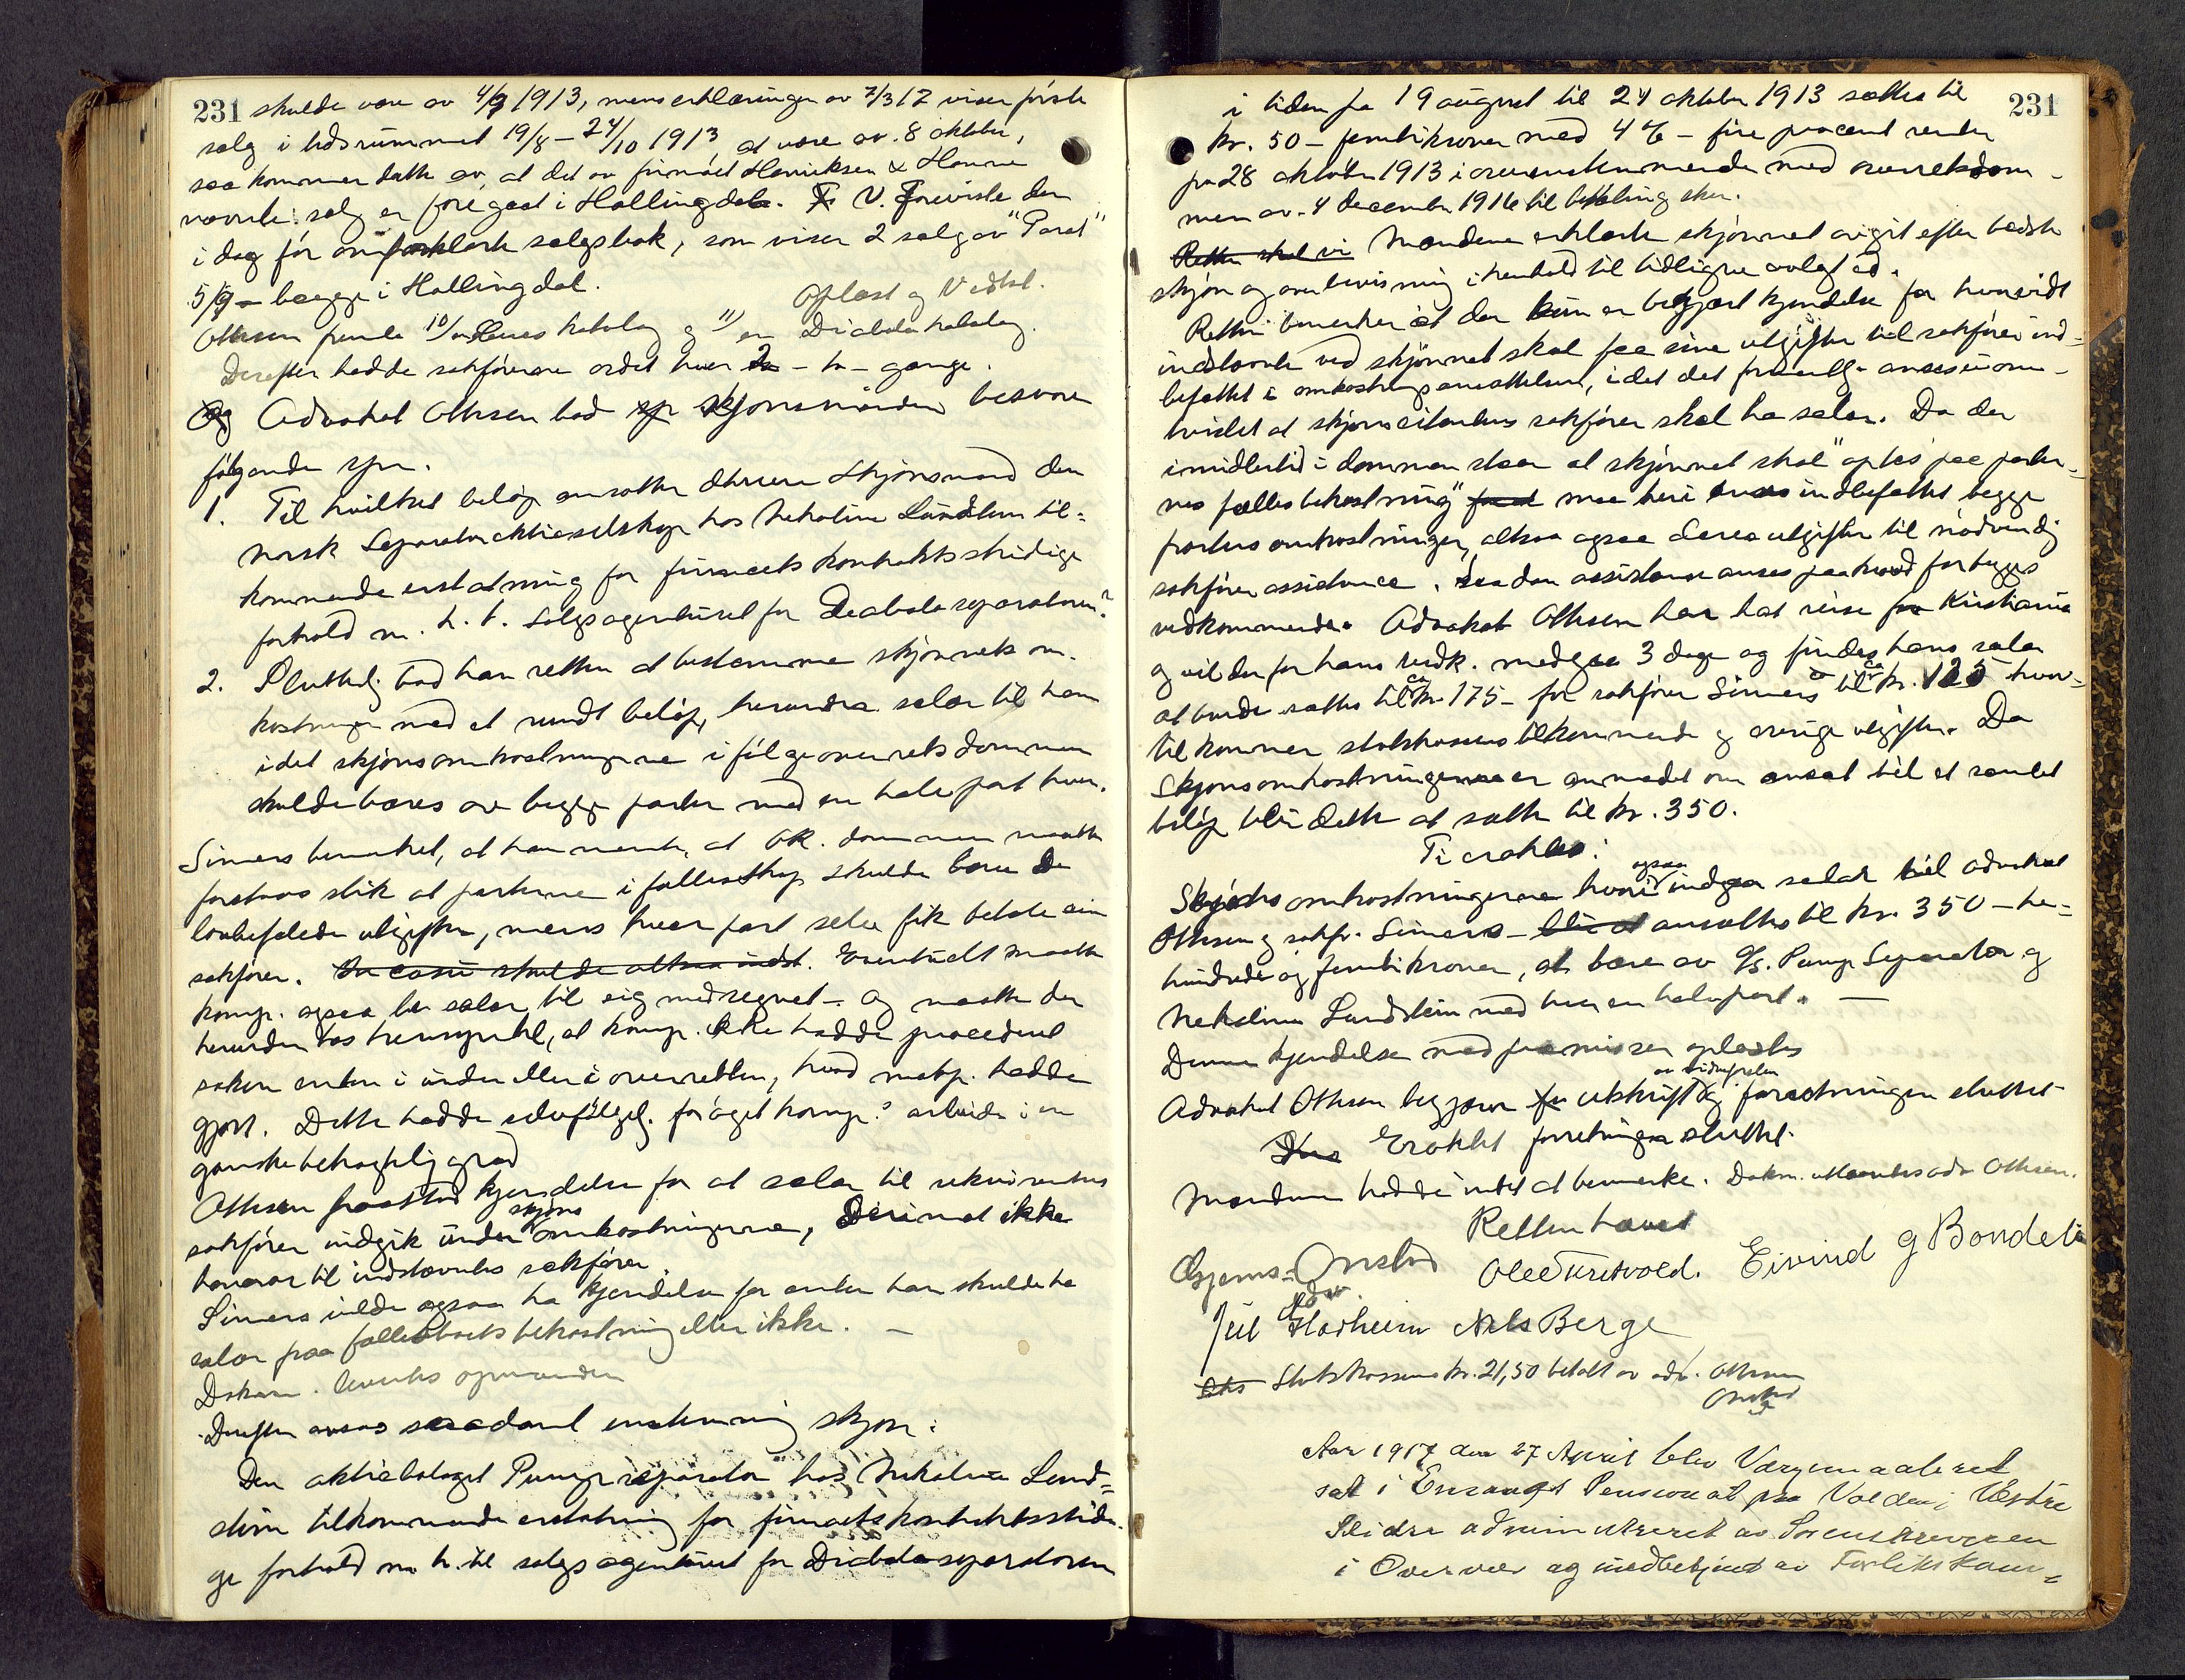 231 skulde være av 4/9 1913, mens erklæringen av 7/3 17 viser første
salg i tidsrummet 19/8 - 24/10 1913 at være av 8 oktober,
saa kommer dette av, at det av firmaet Henriksen & Hanne
nævnte salg er foregaat i Hallingdal. V. foreviste den
i dag før omforklarte salgsbok, som viser 2 salg av "Parat"
5/9 - begge i Hallingdal. Oplæst og Vedtat.
Ottesen fremla 10/ katalog og 11/ en Diabolo katalog.
Derefter hadde sakførerne ordet hver 2 - to - gange.
Og Advokat Ottesen bad skjønsmænden besvare
følgende spm.
1. Til hvilket beløp ansætter dhrr. Skjønsmænd den
Norsk Separatoraktieselskap hos Nekoline Lundstein til-
kommende erstatning for firmaets kontraktsstridige
forhold m. h. t. Salgsagenturet for Diabolo separatoren?
2. Sluttelig bad han retten at bestemme skjønnets om-
kostninger med et rundt beløp, herunder salær til ham
idet skjønsomkostningerne ifølge overretsdommen
skulde bæres av begge parter med en halvpart hver.
Simers bemerket, at han mente, at OR. dommen maatte
forstaaes slik at parterne i fællesskap skulde bære de
lovbefalede utgifter, mens hver part selv fik betale sin
sakfører. In casu skulde altsaa indst. Eventuelt maatte
komp. ogsaa ha salær til sig medregnet - og maatte der
herunder tas hensyn til, at komp. ikke hadde procedert
saken enten i under eller i overretten, hvad motp. hadde
gjort. Dette hadde selvfølgelig forøget komp.s arbeide i en
ganske betragtelig grad
Ottesen paastod kjendelse for at salær til rekvirentens
sakfører indgik under skjønsomkostningerne, derimot ikke
honorar til indstævntes sakfører.
Simers vilde ogsaa ha kjendelse for enten han skulde ha
salær paa fællesboets bekostning eller ikke. -
Dokum. leveres opmanden
Derefter avsaas saadant enstemmig skjøn:
Den aktiebolaget Pump separator hos Nekoline Lund-
stein tilkommende erstatning for firmaets kontraktsstridi-
ge forhold m. h. til salgsagenturet for Diaboloseparatoren
231
i tiden fra 19 august til 24 oktober 1913 sættes til
kr. 50 - femtikroner med 4 % - fire procent renter
fra 28 oktober 1913 i overensstemmende med overretsdom-
men av 4 december 1916 til betaling sker.
Retten skal vi Mændene erklærte skjønnet avgit efter bedste
skjøn og overbevisning i henhold til tidligere avlagt ed.
Retten bemerker at der kun er begjært kjendelse for hvorvidt
indstævnte ved skjønnet skal faa sine utgifter til sakfører ind-
befattet i omkostningsansættelsen, idet det forøvrig anses uom-
tvistet at skjønscitantens sakfører skal ha salær. Da der
imidlertid i dommen staar at skjønnet skal "optas paa parter-
nes fælles bekostning" maa heri anses indbefattet begge
parters omkostninger, altsaa ogsaa deres utgifter til nødvendig
sakførerassistance. Saadan assistanse anses paakrævd for begges
vedkommende. Advokat Ottesen har hat reise fra Kristiania
og vil der for hans vedk. medgaa 3 dage og findes hans salær
at burde sættes til ca kr. 175 - for sakfører Simers til ca kr. 125 hvor-
til kommer statskassens tilkommende og øvrige utgifter. Da
Skjønsomkostningerne er anmodet om ansat til et samlet
beløp blir dette at sætte til kr. 350.
Ti eraktes:
Skjøns omkostningerne hvori ogsaa indgaar salær til advokat
Ottesen og sakf. Simers - blir at ansættes til kr. 350 - tre-
hundrede og femti kroner, at bære av A/S. Pump Separator og
Nekoline Lundstein med hver en halvpart. -
Denne kjendelse med præmisser oplæstes
Advokat Ottesen begjærer utskrift av tidsfrelen og forretningen sluttet
Eraktet forretningen sluttet.
Mændene hadde intet at bemerke. Dokm. utleveres adv. Ottesen.
Retten hævet
Gjems-Onstad Ole Turetvold. Eivind G Bondeli
Jul Hørheim Nils Berge
Statskassens kr. 21,50 betalt av adv. Ottesen
Onstad
Aar 1917 den 27 April blev Værgemaalsret
sat i Ensrugt Pensionat paa Volden i Vestre
Slidre administreret av Sorenskriveren
i Overvær og medbetjent av Forlikskom-